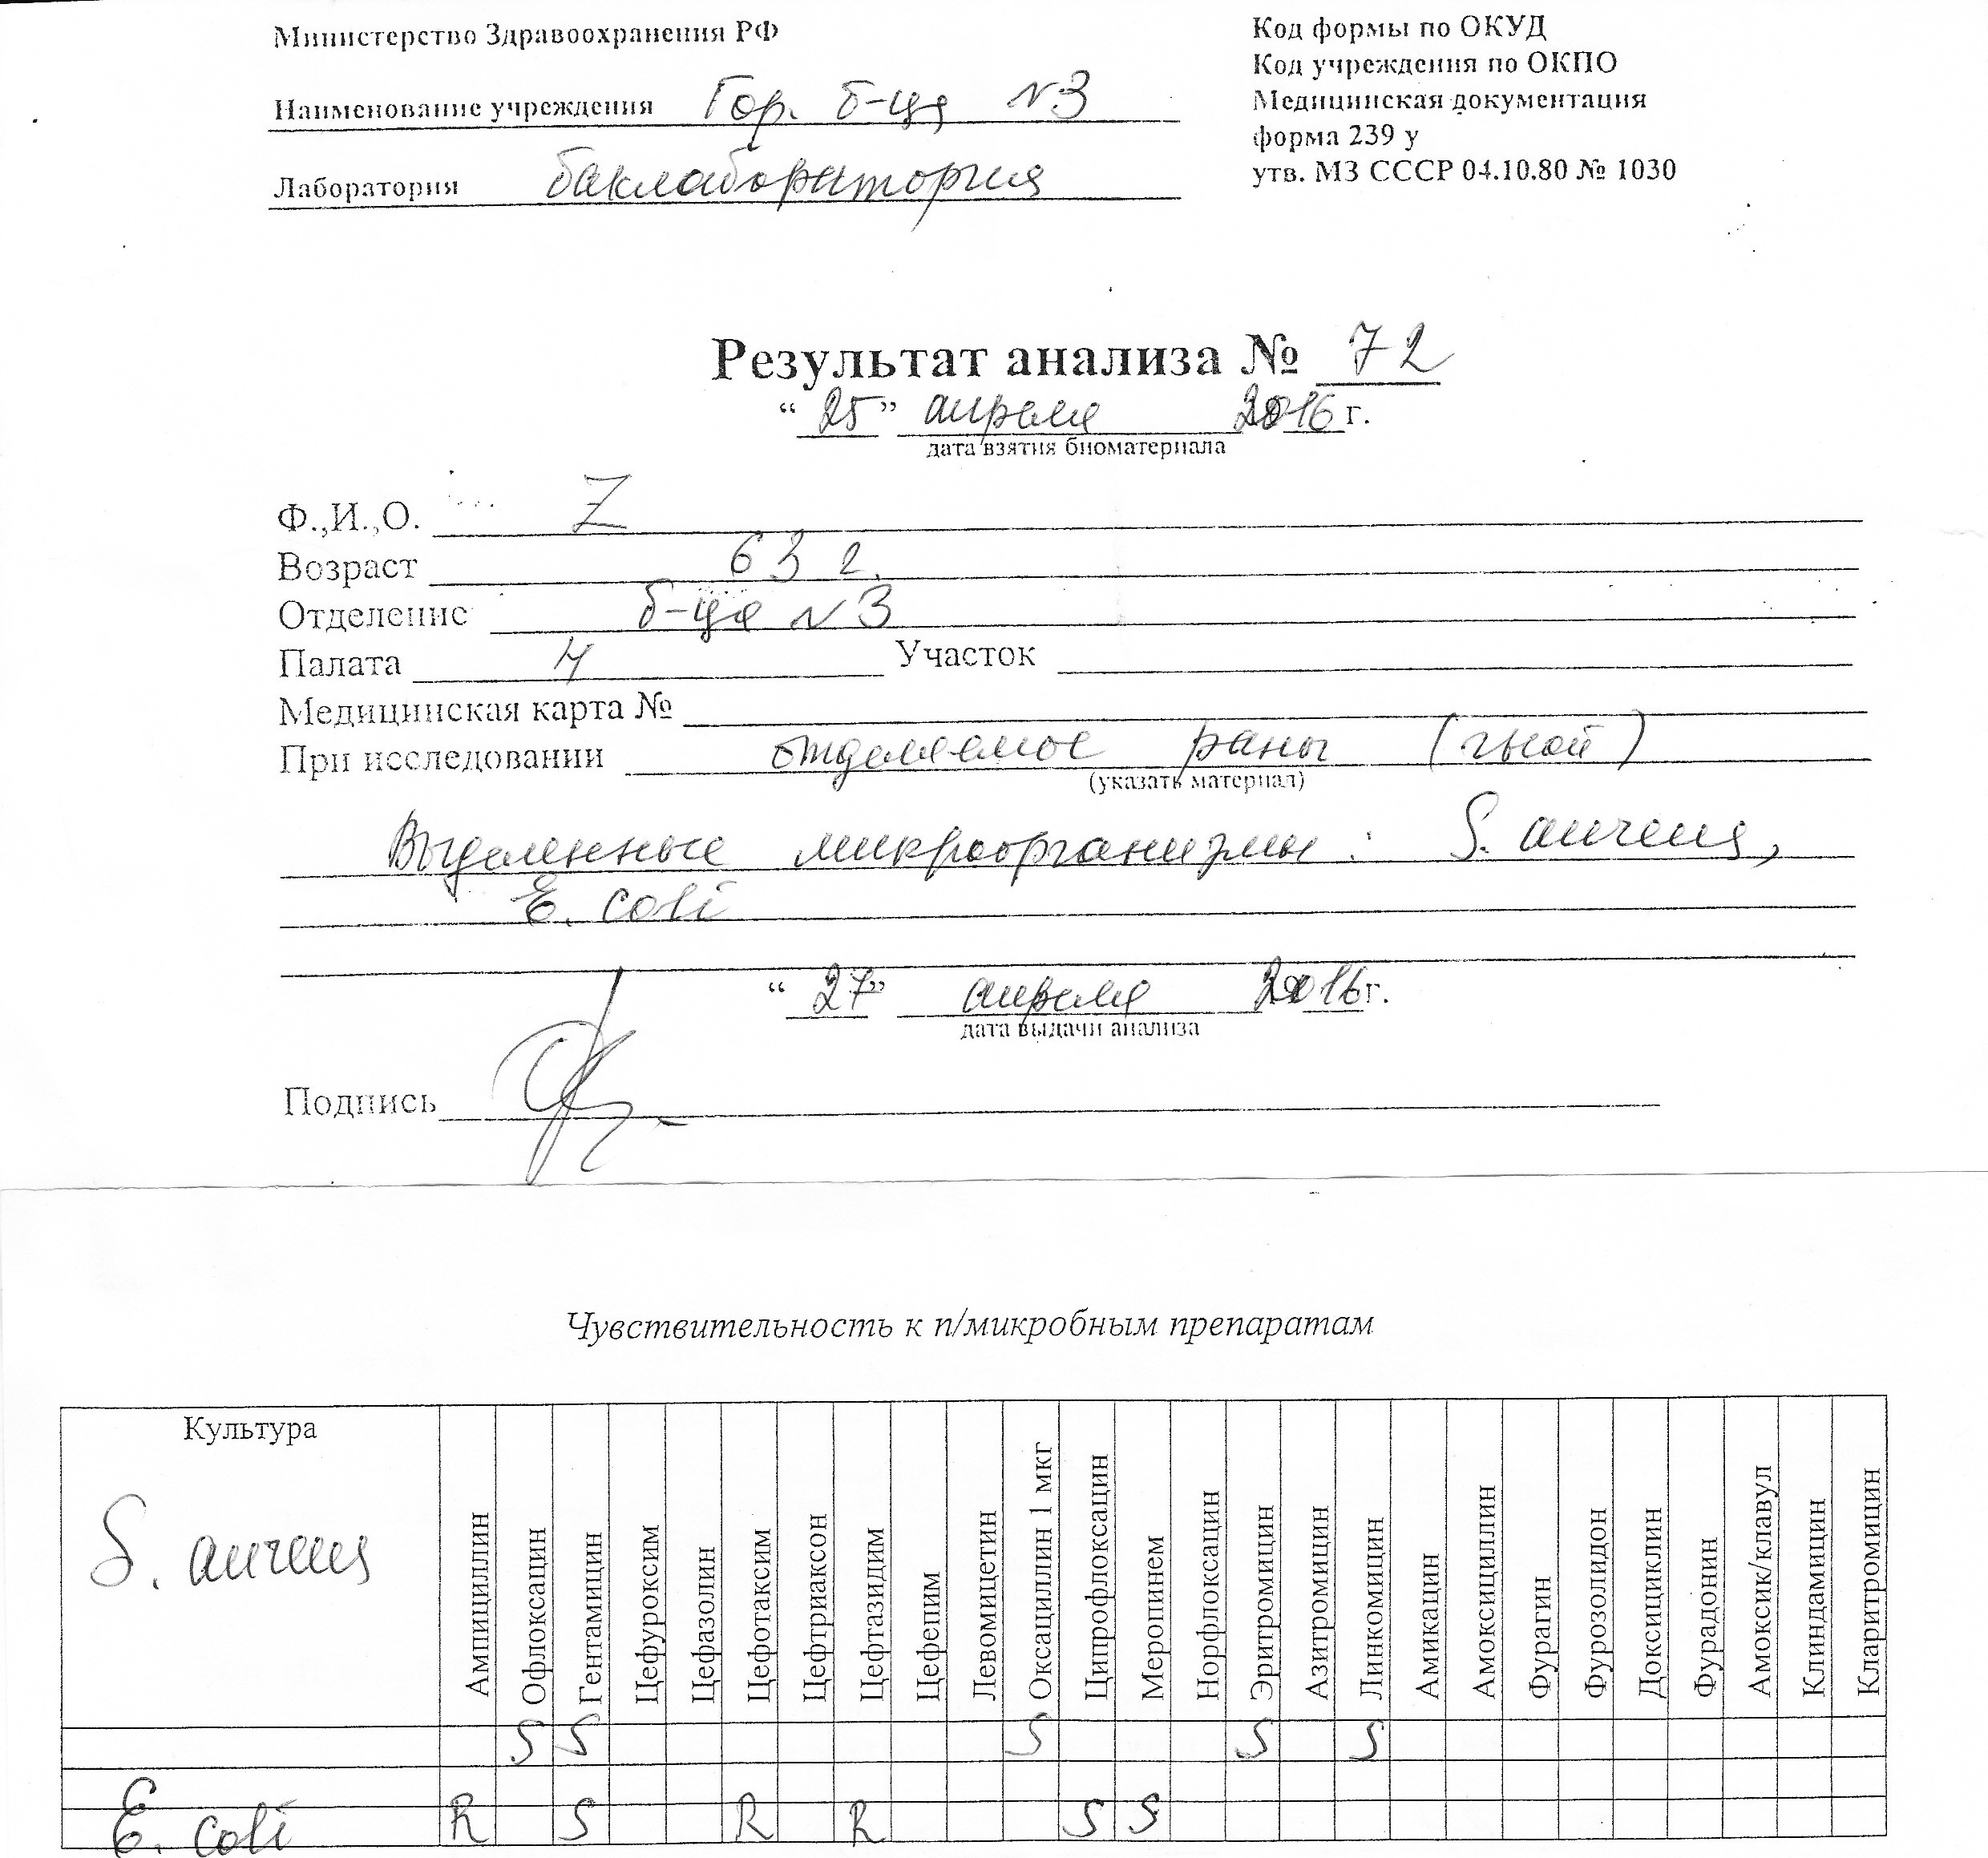 Министерство Здравоохранения РФ
Наименование учреждения Гор. б-ца №3
Лаборатория баклаборатория
Код формы по ОКУД
Код учреждения по ОКПО
Медицинская документация
форма 239 у
утв. МЗ СССР 04.10.80 № 1030
Результат анализа № 72
“ 25 ” апреля 2016 г.
дата взятия биоматериала
Ф.,И.,О. Z
Возраст 63 г.
Отделение б-ца №3
Палата 4 Участок
Медицинская карта №
При исследовании отделяемое раны (гной)
(указать материал)
Выделенные микроорганизмы: S. aureus,
E. coli
“ 27 ” апреля 2016 г.
дата выдачи анализа
Подпись
Чувствительность к п/микробным препаратам
Культура
S. aureus
Ампициллин
Офлоксацин
Гентамицин
Цефуроксим
Цефазолин
Цефотаксим
Цефтриаксон
Цефтазидим
Цефепим
Левомицетин
Оксациллин 1 мкг
Ципрофлоксацин
Меропинем
Норфлоксацин
Эритромицин
Азитромицин
Линкомицин
Амикацин
Амоксициллин
Фурагин
Фурозолидон
Доксициклин
Фурадонин
Амоксик/клавул
Клиндамицин
Кларитромицин
S S S S S
E. coli R S R R S S